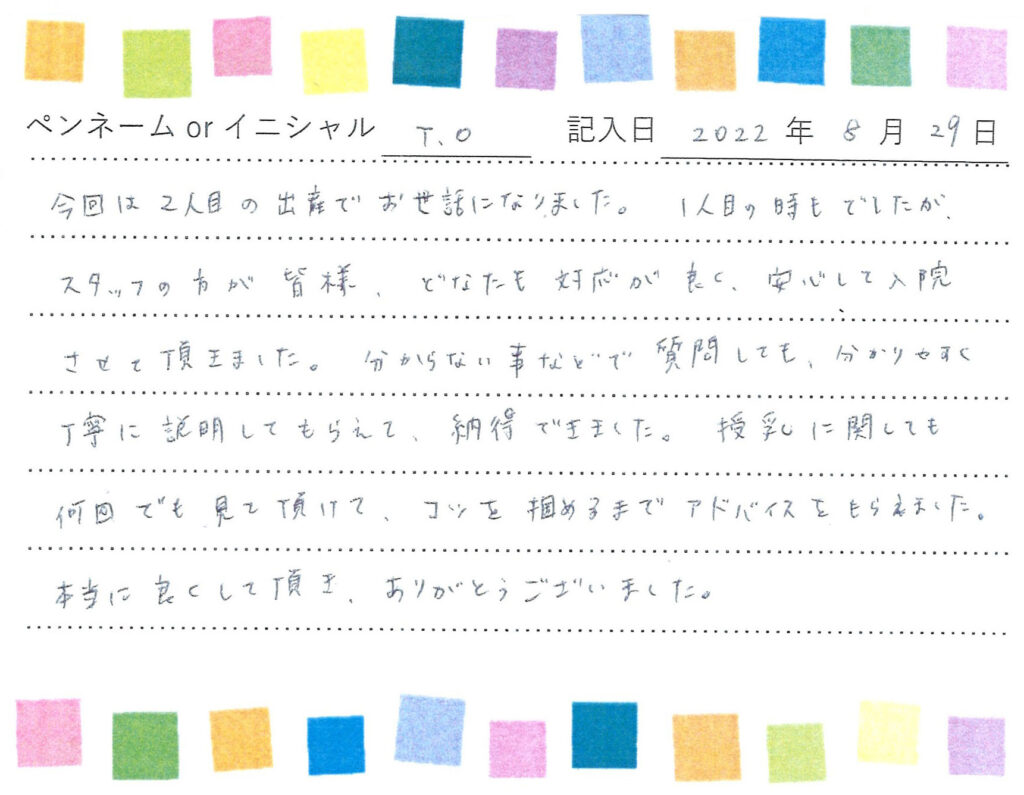 ペンネーム or イニシャル T.O 記入日 2022 年 8 月 29 日
今回は2人目の出産でお世話になりました。 1人目の時もでしたが、
スタッフの方が皆様、どなたも対応が良く、安心して入院
させて頂きました。 分からない事などで質問しても、分かりやすく
丁寧に説明してもらえて、納得できました。 授乳に関しても
何回でも見て頂けて、コツを掴めるまでアドバイスをもらえました。
本当に良くして頂き、ありがとうございました。